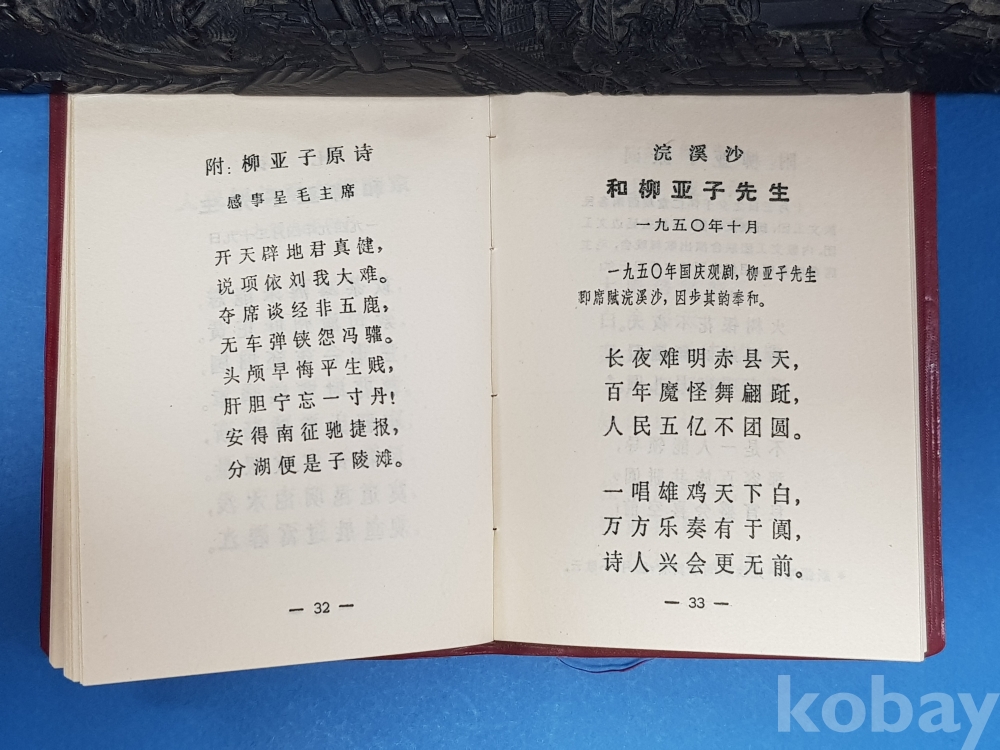 附：柳亚子原诗
感事呈毛主席
开天辟地君真健，
说项依刘我大难。
夺席谈经非五鹿，
无车弹铗怨冯驩。
头颅早悔平生贱，
肝胆宁忘一寸丹！
安得南征驰捷报，
分湖便是子陵滩。
— 32 —
浣溪沙
和柳亚子先生
一九五〇年十月
一九五〇年国庆观剧，柳亚子先生
即席赋浣溪沙，因步其韵奉和。
长夜难明赤县天，
百年魔怪舞翩跹，
人民五亿不团圆。
一唱雄鸡天下白，
万方乐奏有于阗，
诗人兴会更无前。
— 33 —
kobay